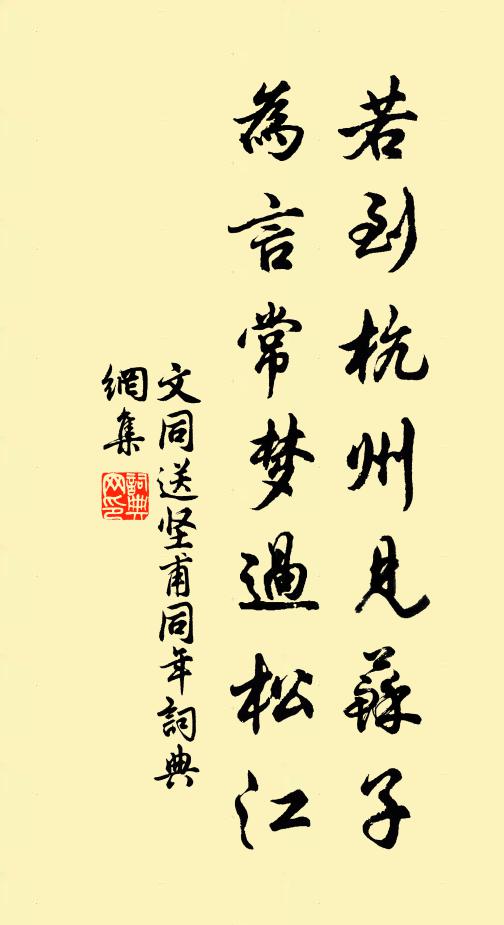 若到杭州見蘇子
為言常梦過松江
文同送坚甫同年詞典
網集
詞典網印